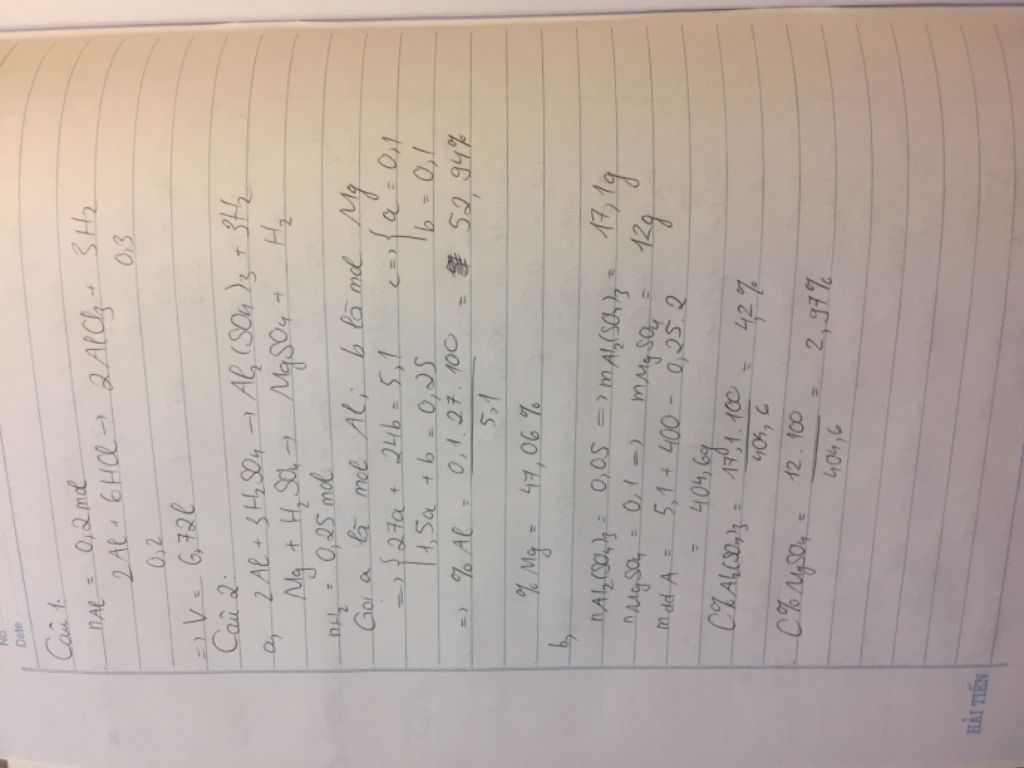 No.
Date
Câu 1.
nAl = 0,2 mol
2Al + 6HCl → 2AlCl3 + 3H2
0,2 0,3
=> V = 6,72l
Câu 2.
a, 2Al + 3H2SO4 → Al2(SO4)3 + 3H2
Mg + H2SO4 → MgSO4 + H2
nH2 = 0,25 mol
Gọi a là mol Al; b là mol Mg
=> { 27a + 24b = 5,1 <=> { a = 0,1
1,5a + b = 0,25 b = 0,1
=> % Al = 0,1.27.100 / 5,1 = 52,94%
% Mg = 47,06%
b,
nAl2(SO4)3 = 0,05 => mAl2(SO4)3 = 17,1g
nMgSO4 = 0,1 => mMgSO4 = 12g
mdd A = 5,1 + 400 - 0,25.2
= 404,6g
C%Al2(SO4)3 = 17,1.100 / 404,6 = 4,2%
C% MgSO4 = 12.100 / 404,6 = 2,97%
HẢI TIẾN